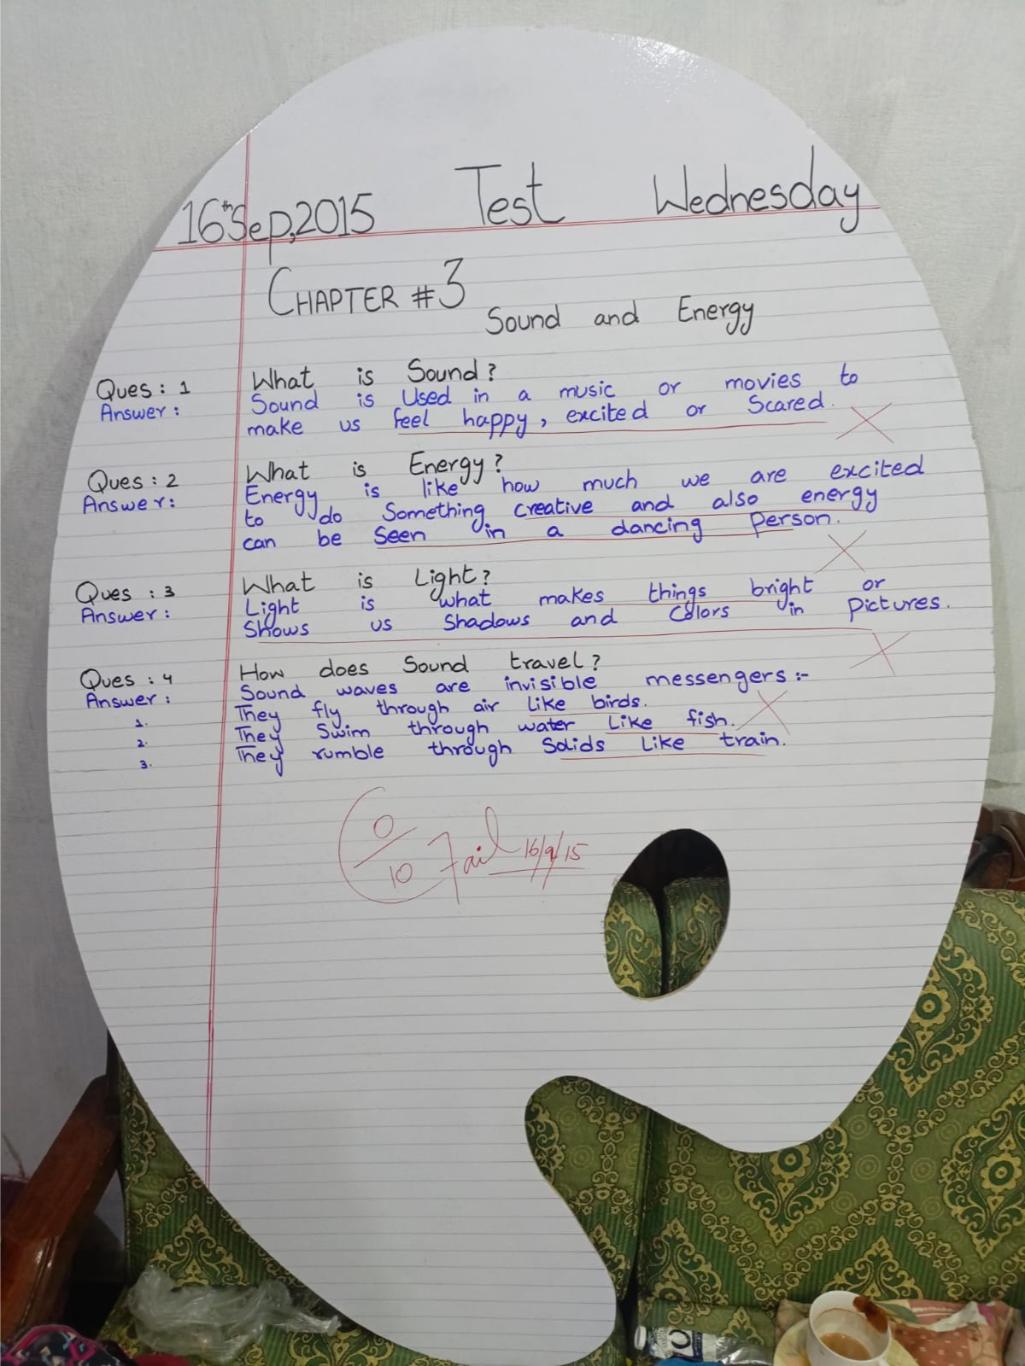 16th Sep, 2015 Test Wednesday
CHAPTER #3
Sound and Energy
Ques: 1 What is Sound?
Answer: Sound is Used in a music or movies to
make us feel happy, excited or Scared.
Ques: 2 What is Energy?
Answer: Energy is like how much we are excited
to do Something creative and also energy
can be Seen in a dancing Person.
Ques: 3 What is Light?
Answer: Light is what makes things bright or
Shows us Shadows and Colors in Pictures.
Ques: 4 How does Sound travel?
Answer: Sound waves are invisible messengers:-
1. They fly through air like birds.
2. They Swim through water Like fish.
3. They rumble through Solids Like train.
0/10 Fail 16/9/15